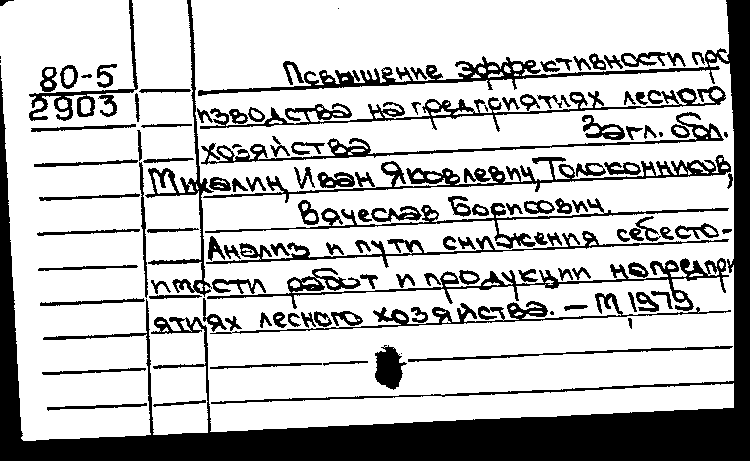 80-5
2903
Повышение эффективности про
изводства на предприятиях лесного
хозяйства Загл. обл.
Михалин, Иван Яковлевич, Толоконников,
Вячеслав Борисович.
Анализ и пути снижения себесто-
имости работ и продукции на предпри
ятиях лесного хозяйства. - М, 1979.